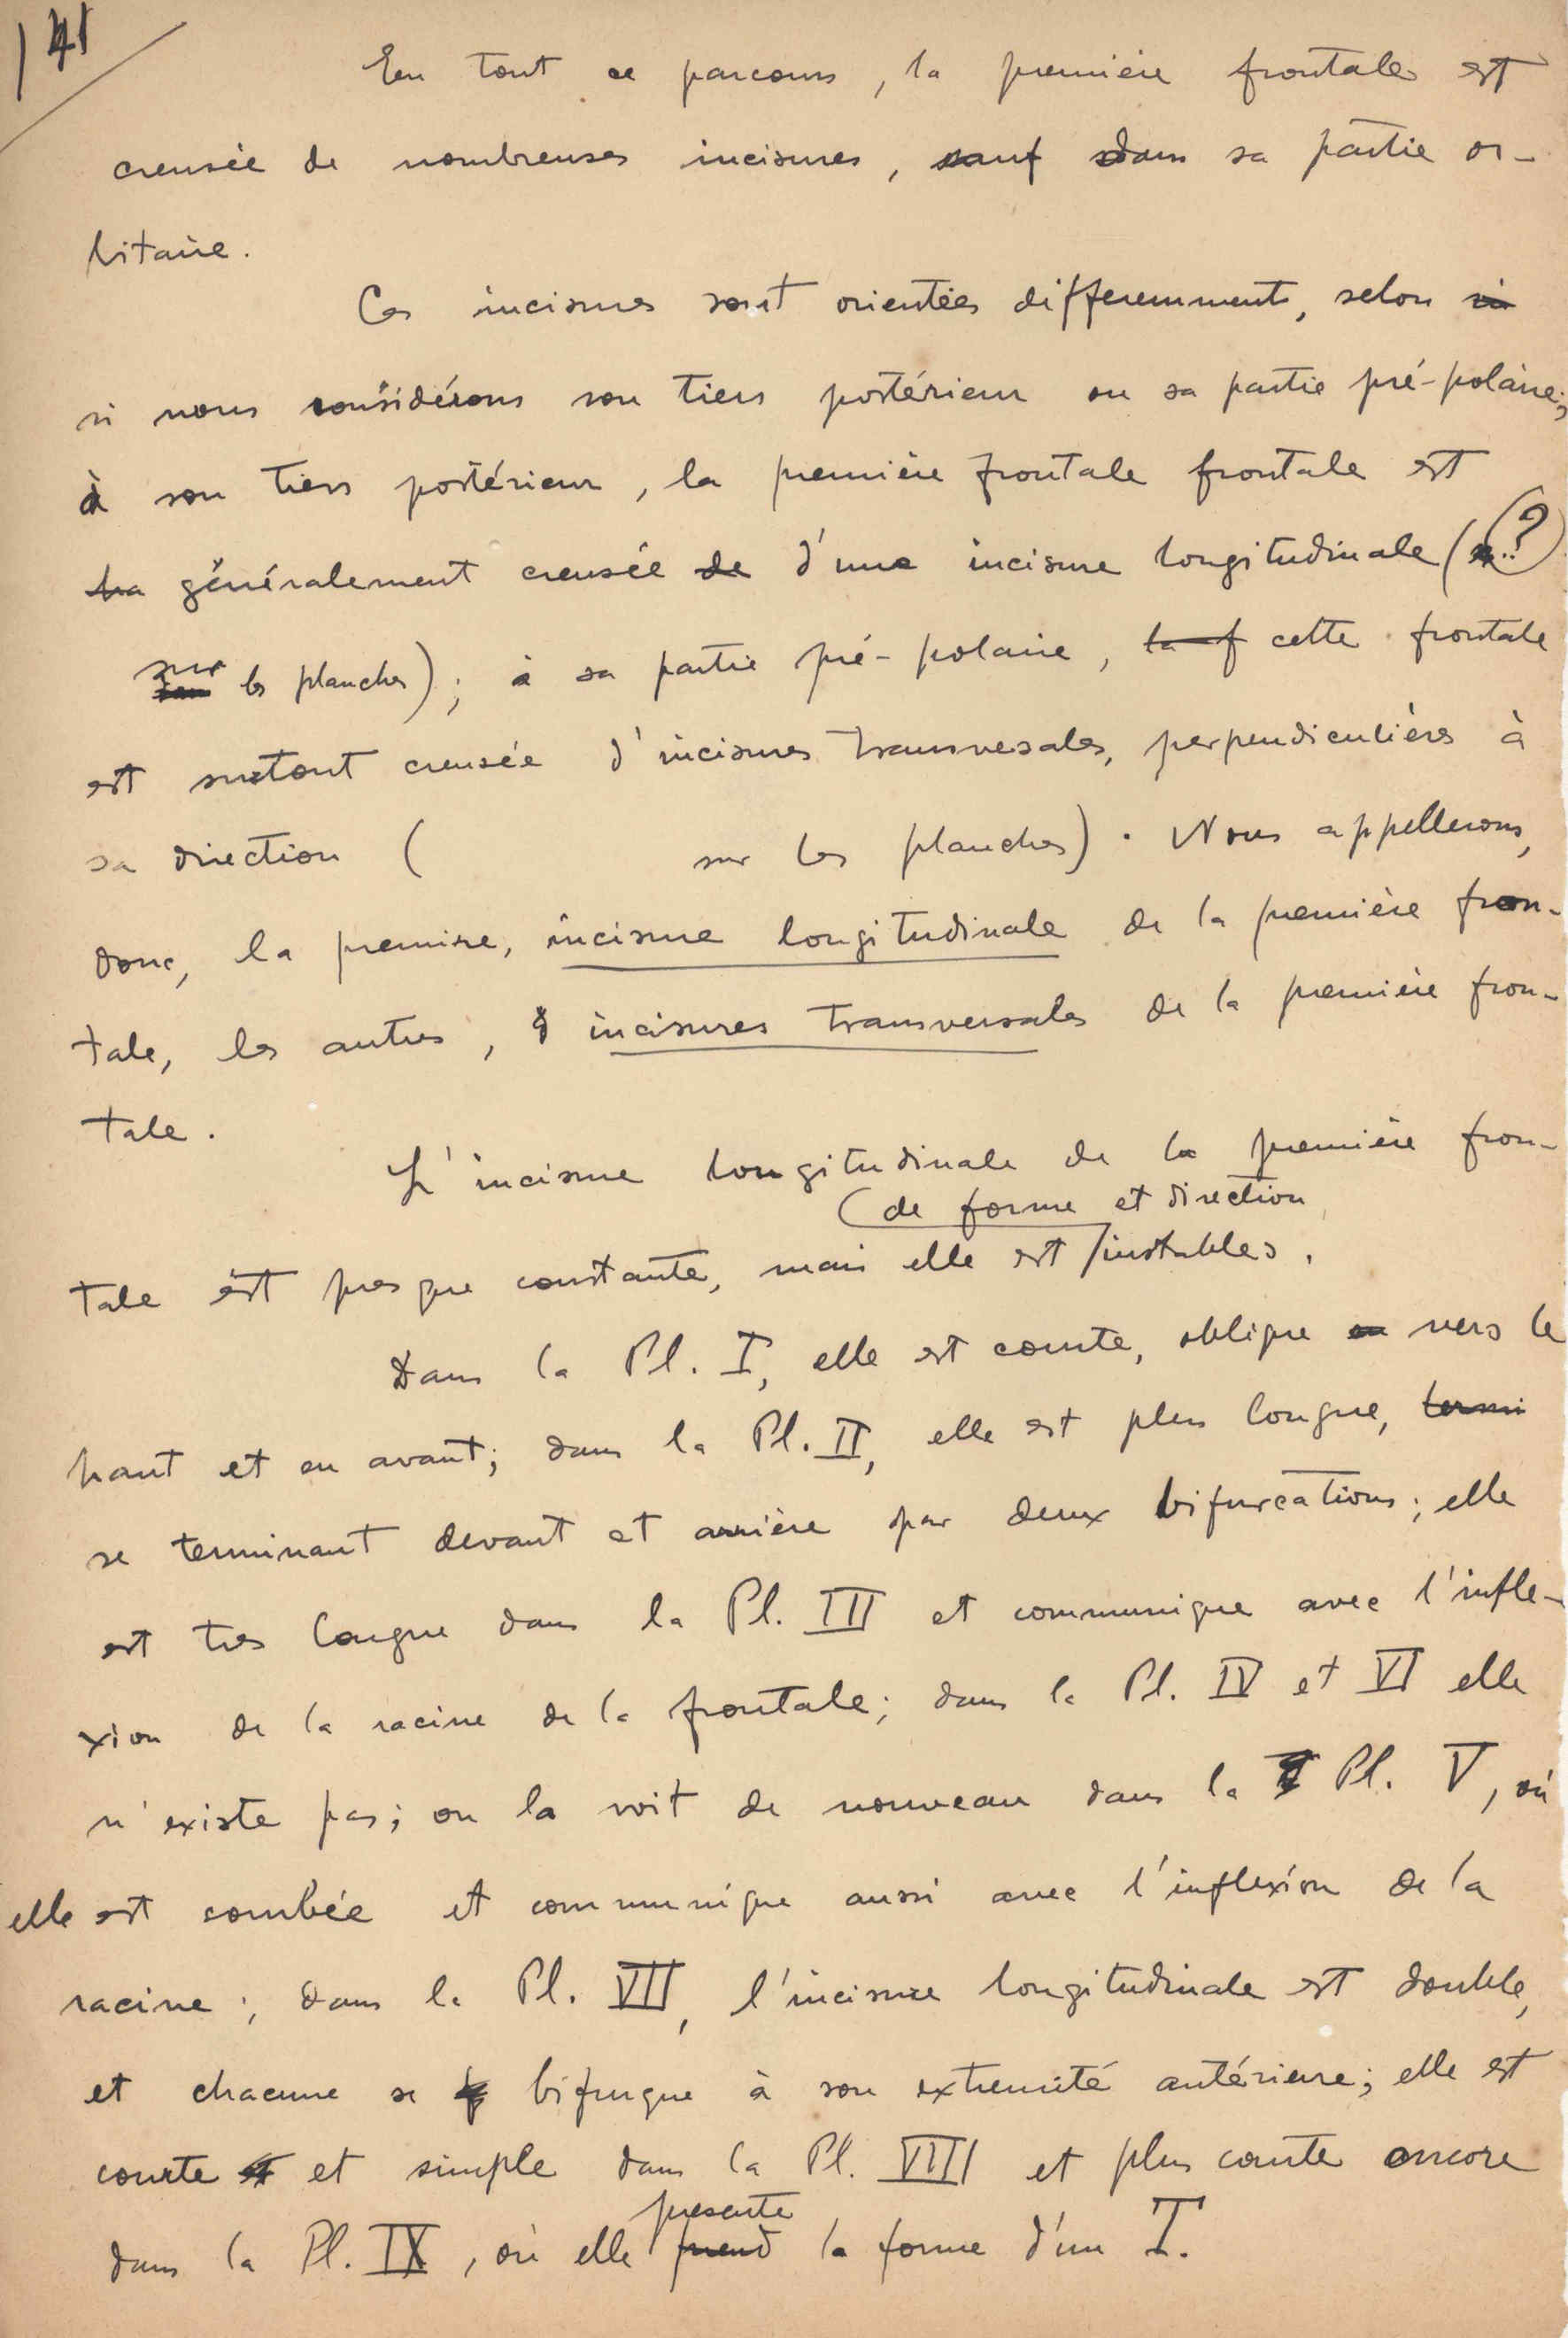 141
En tout ce parcours, la première frontale est
creusée de nombreuses incisures, sauf dans sa partie or-
bitaire.
Ces incisures sont orientées differemment, selon
si nous considérons son tiers postérieur ou sa partie pré-polaire;
à son tiers postérieur, la première frontale frontale est
généralement creusée de d'une incisure longitudinale ( ..?
sur les planches); à sa partie pré-polaire, cette frontale
est surtout creusée d'incisures transvesales, perpendiculières à
sa direction ( sur les planches). Nous appellerons,
donc, la premire, incisure longitudinale de la première fron-
tale, les autres, incisures transversales de la première fron-
tale.
L'incisure longitudinale de la première fron-
(de forme et direction
tale est presque constante, mais elle est instables.
Dans la Pl. I, elle est courte, oblique vers le
haut et en avant; dans la Pl. II, elle est plus longue, termi
se terminant devant et arrière par deux bifurcations; elle
est tres longue dans la Pl. III et communique avec l'infle-
xion de la racine de la frontale; dans la Pl. IV et VI elle
n'existe pas; on la voit de nouveau dans la Pl. V, où
elle est courbée et communique aussi avec l'inflexion de la
racine; dans la Pl. VII, l'incisure longitudinale est double,
et chacune se bifurque à son extremité antérieure; elle est
courte et simple dans la Pl. VIII et plus courte encore
presente
dans la Pl. IX, où elle prend la forme d'un I.